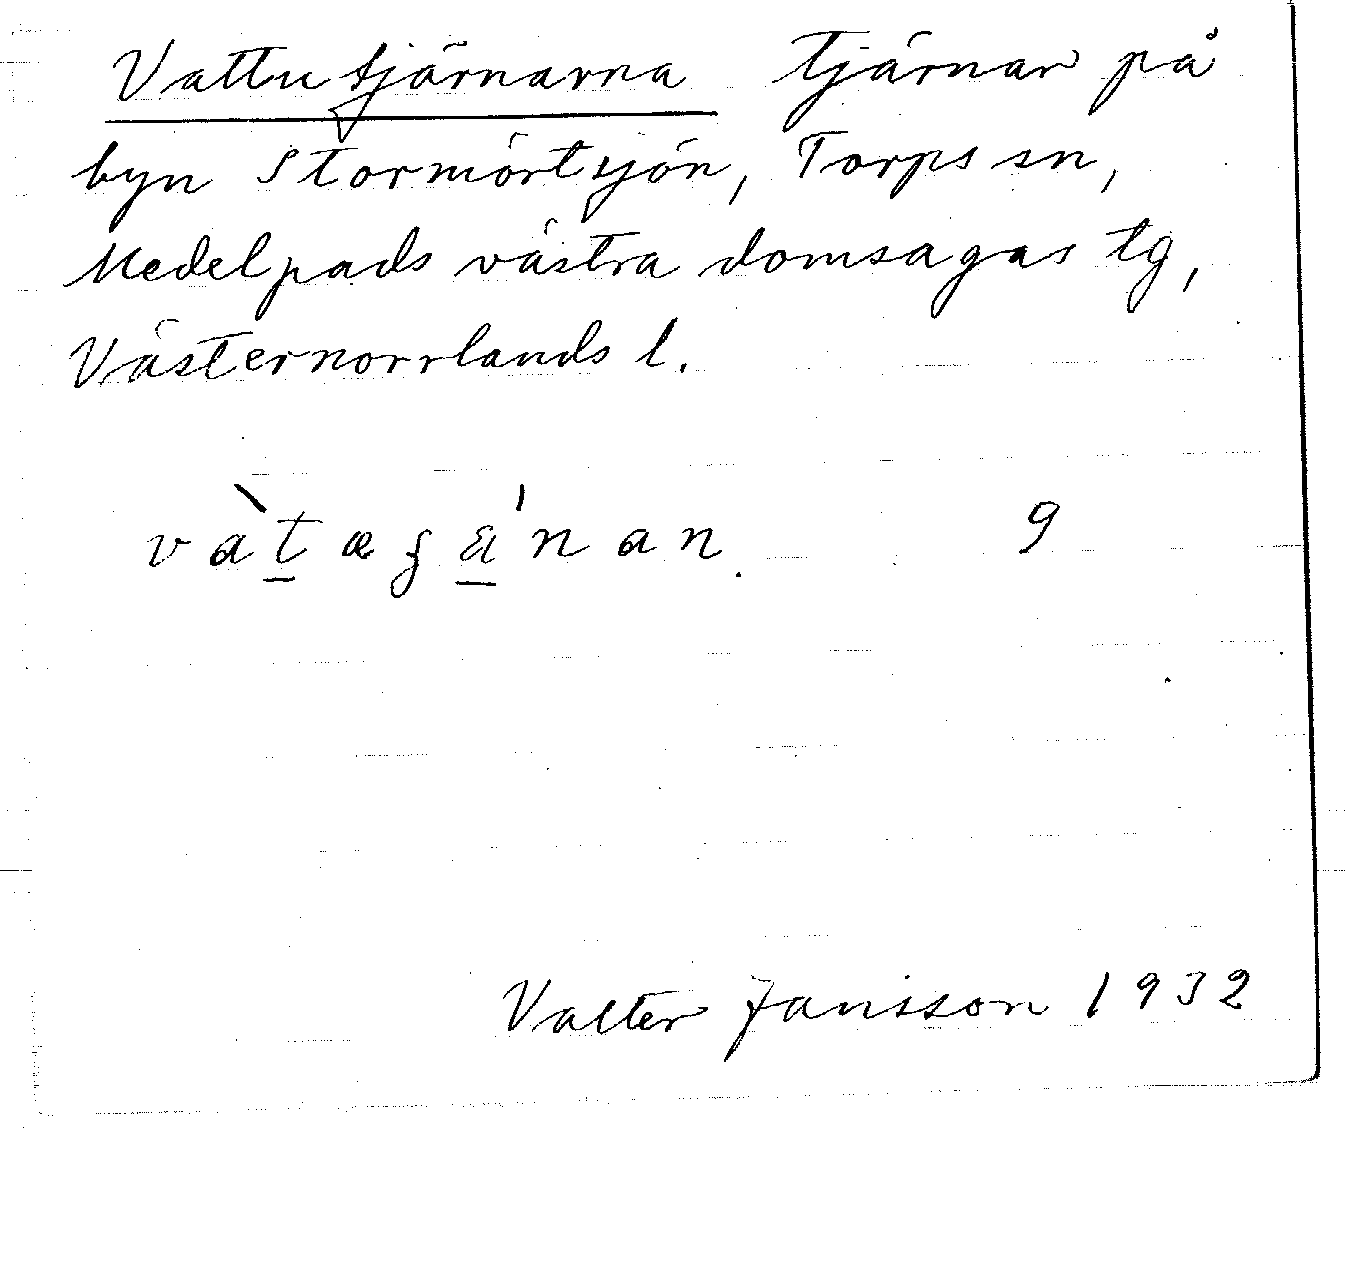 Vattutjärnarna tjärnar på
byn Stormörtsjön, Torps sn,
Medelpads västra domsagas tg,
Västernorrlands l.
9
Valter Jansson 1932